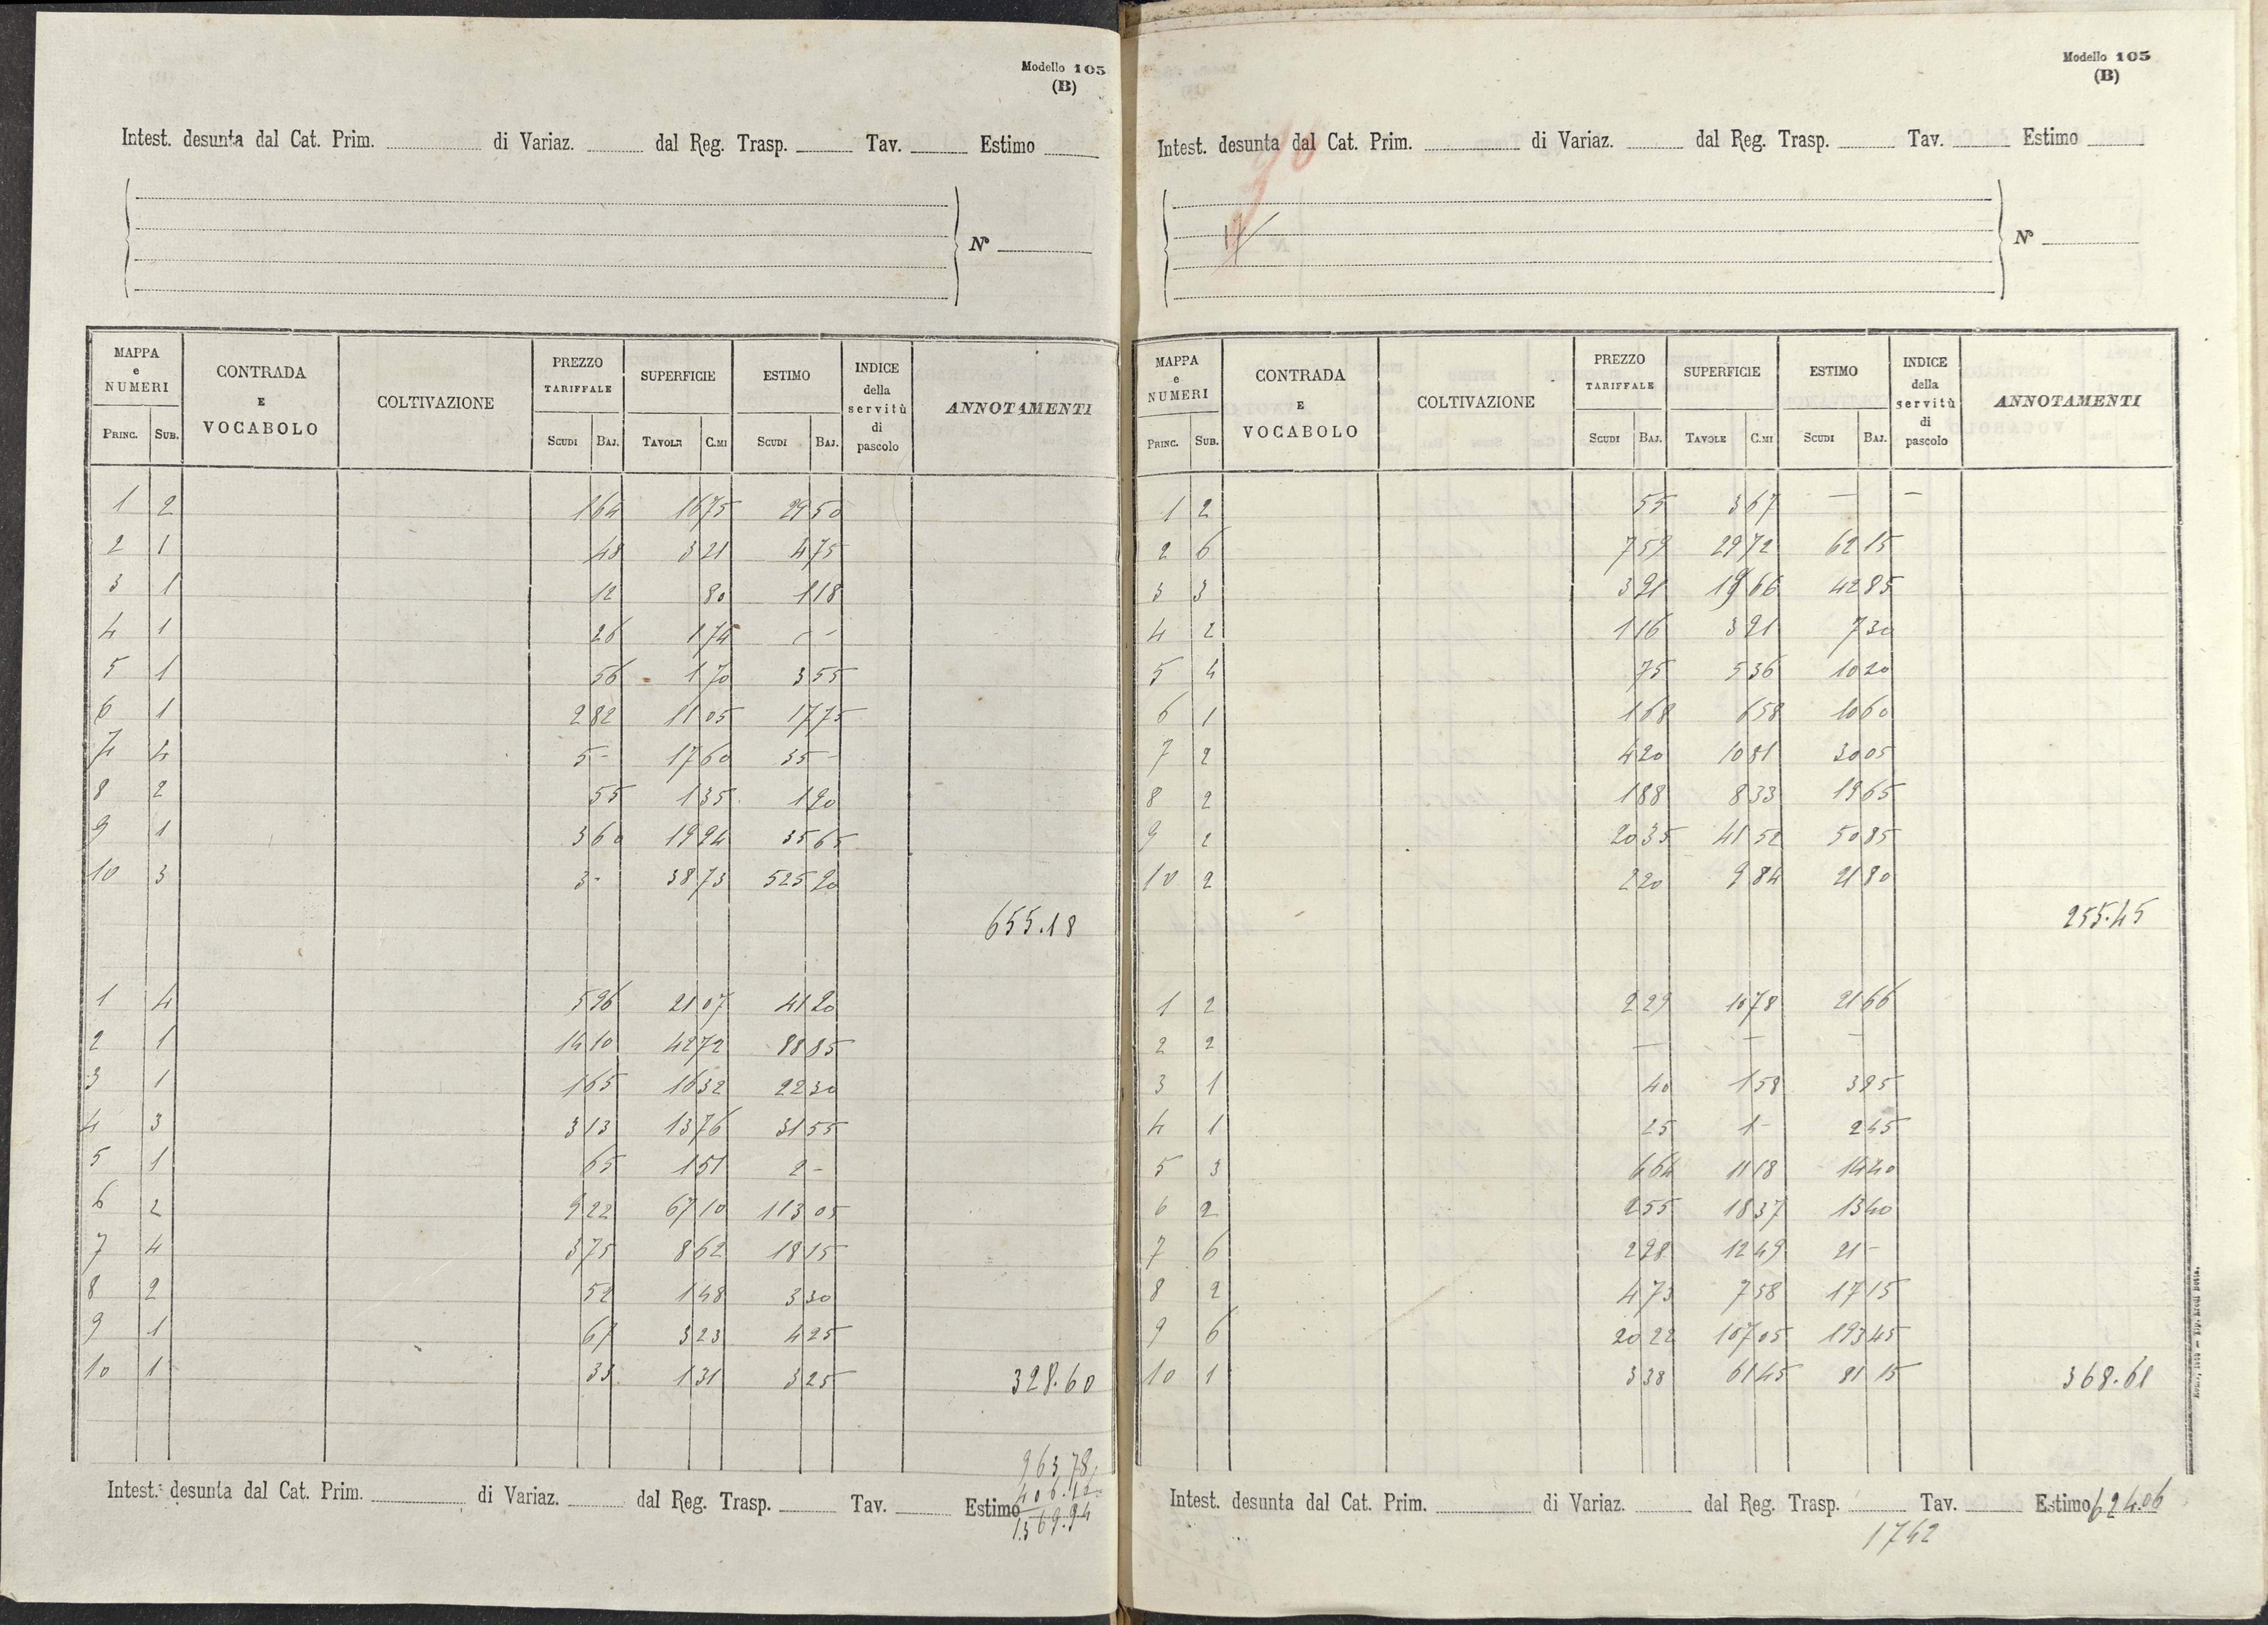 Modello 105
(B)
Intest. desunta dal Cat. Prim. di Variaz. dal Reg. Trasp. Tav. Estimo
N°
MAPPA e NUMERI CONTRADA E VOCABOLO COLTIVAZIONE PREZZO TARIFFALE SUPERFICIE ESTIMO INDICE della servitù di pascolo ANNOTAMENTI
PRINC. SUB. SCUDI BAJ. TAVOLE C.MI SCUDI BAJ.
1 2 1 64 16 75 29 50
2 1 48 3 21 4 75
3 1 12 80 1 18
4 1 26 1 74 - -
5 1 56 1 70 3 55
6 1 2 82 11 05 17 75
7 4 5 - 17 60 35 -
8 2 55 1 35 1 20
9 1 3 60 19 94 35 65
10 3 3 - 38 73 525 20
655.18
1 4 5 96 21 07 41 20
2 1 14 10 42 72 88 85
3 1 1 65 16 32 22 30
4 3 3 13 13 76 31 55
5 1 65 1 51 2 -
6 2 9 22 67 10 113 05
7 4 3 75 8 62 18 15
8 2 52 1 48 3 30
9 1 67 3 23 4 25
10 1 33 1 31 3 25 328.60
963.78
406.16
1369.94
Intest. desunta dal Cat. Prim. di Variaz. dal Reg. Trasp. Tav. Estimo
Modello 105
(B)
Intest. desunta dal Cat. Prim. di Variaz. dal Reg. Trasp. Tav. Estimo
N°
MAPPA e NUMERI CONTRADA E VOCABOLO COLTIVAZIONE PREZZO TARIFFALE SUPERFICIE ESTIMO INDICE della servitù di pascolo ANNOTAMENTI
PRINC. SUB. SCUDI BAJ. TAVOLE C.MI SCUDI BAJ.
1 2 55 3 67 — —
2 6 7 59 29 72 62 15
3 3 3 21 19 66 42 85
4 2 1 16 3 21 7 30
5 4 75 5 36 10 20
6 1 1 68 6 58 10 60
7 2 4 20 10 31 30 05
8 2 1 88 8 33 19 65
9 2 20 35 41 52 50 85
10 2 2 20 9 84 21 80
255.45
1 2 2 29 10 78 21 66
2 2 — — —
3 1 40 1 58 3 95
4 1 25 1 - 2 45
5 3 6 64 11 18 14 40
6 2 2 55 18 37 13 40
7 6 2 98 12 49 21 -
8 2 4 73 7 58 17 15
9 6 20 22 107 05 193 45
10 1 3 38 61 45 81 15 368.61
Intest. desunta dal Cat. Prim. di Variaz. dal Reg. Trasp. Tav. Estimo 624.06
1742